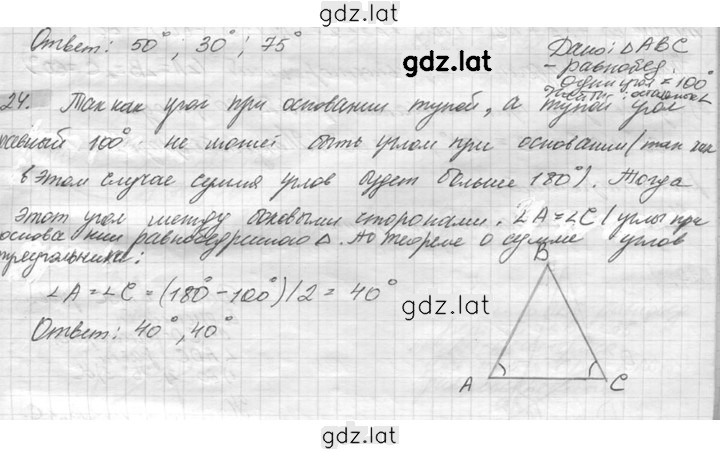 gdz.lat
Ответ: 50°; 30°; 75°
gdz.lat
Дано: △ABC
- равнобед.
один угол = 100°
24. Так как угол при основании тупой, а тупой угол
равный 100° не может быть углом при основании (так как
в этом случае сумма углов будет больше 180°). Тогда
этот угол между боковыми сторонами. ∠A=∠C (углы при
основании равнобедренного △. По теореме о сумме углов
треугольнике:
∠A=∠C=(180°-100°)/2=40°
Ответ: 40°,40°
B
gdz.lat
A
C
gdz.lat